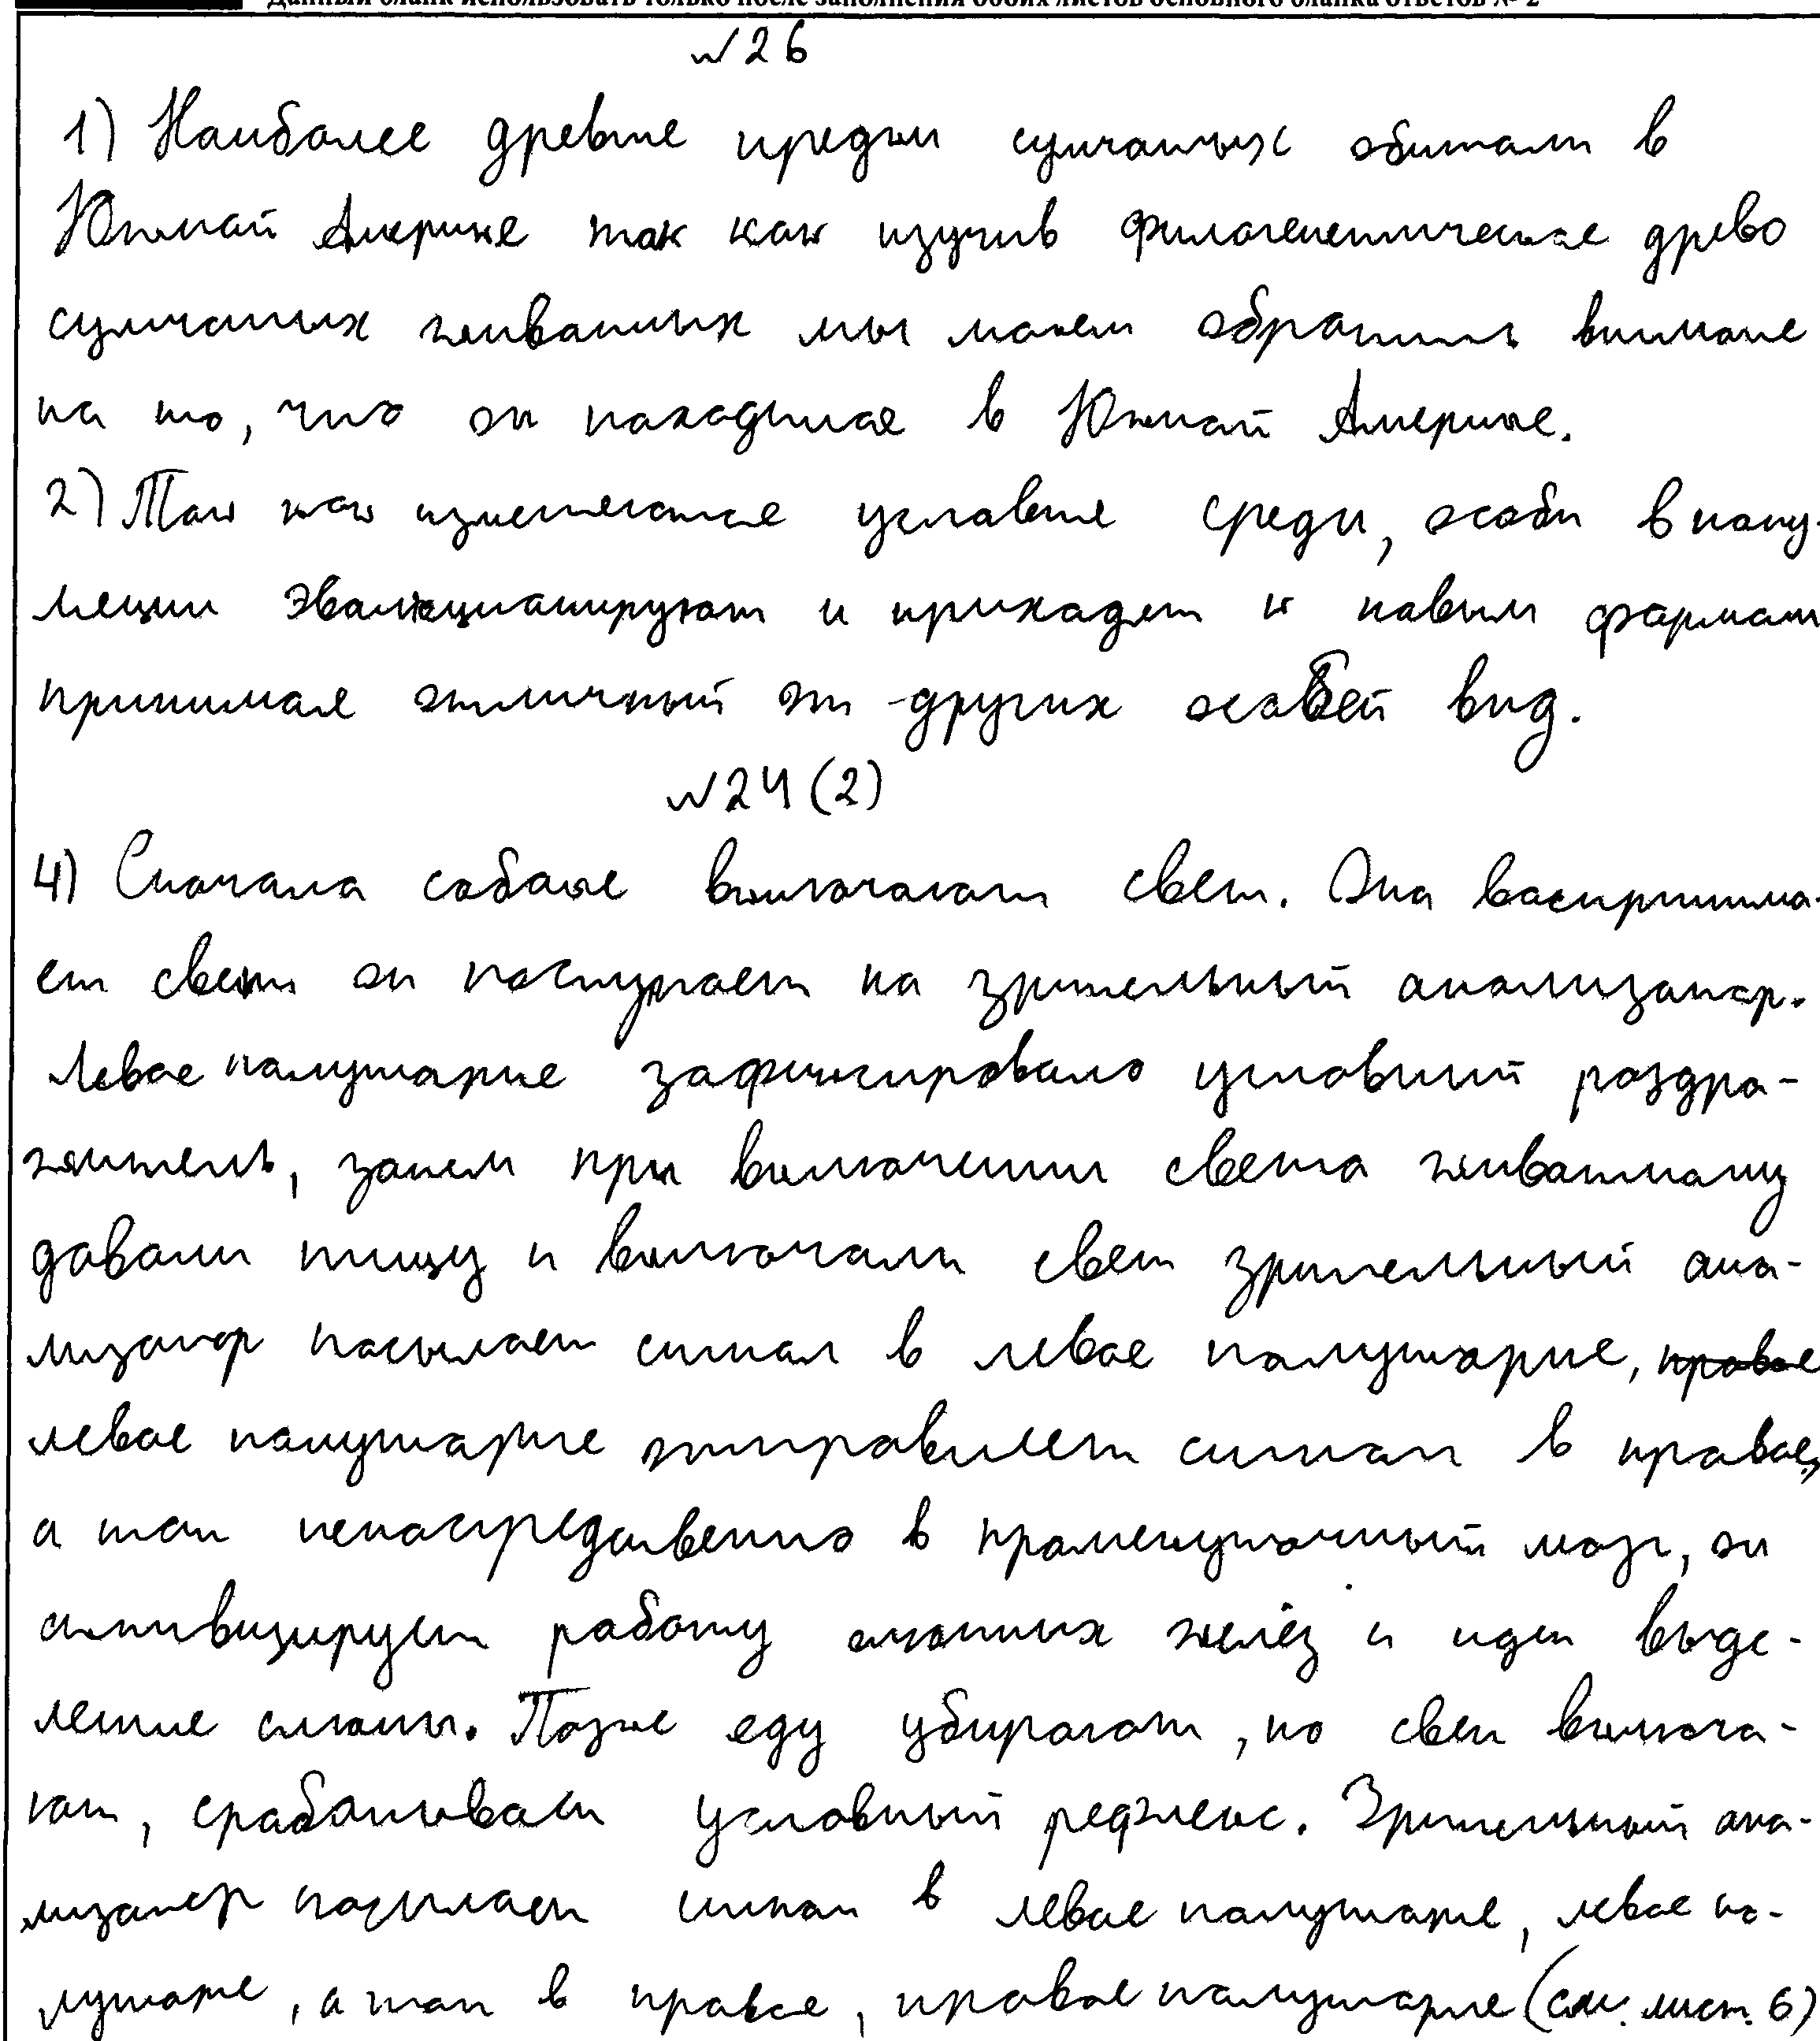 Данный бланк использовать только после заполнения обоих листов основного бланка ответов № 2
№26
1) Наиболее древние предки сумчатых обитали в
Южной Америке так как изучив филогенетическое древо
сумчатых животных мы можем обратить внимание
на то, что он находился в Южной Америке.
2) Так как изменяются условия среды, особи в попу-
ляции эволюционируют и приходят к новым формам
принимая отличный от других особей вид.
№24 (2)
4) Сначала собаке включают свет. Она воспринима-
ет свет он поступает на зрительный анализатор.
Левое полушарие зафиксировало условный раздра-
житель, затем при включении света животному
давали пищу и включали свет зрительный ана-
лизатор посылает сигнал в левое полушарие, правое
левое полушарие отправляет сигнал в правое,
а там непосредственно в промежуточный мозг, он
активизирует работу слюнных желёз и идет выде-
ление слюны. Позже еду убирают, но свет включа-
ют, срабатывает условный рефлекс. Зрительный ана-
лизатор посылает сигнал в левое полушарие, левое по-
лушарие, а там в правое, правое полушарие (см. лист. 6)